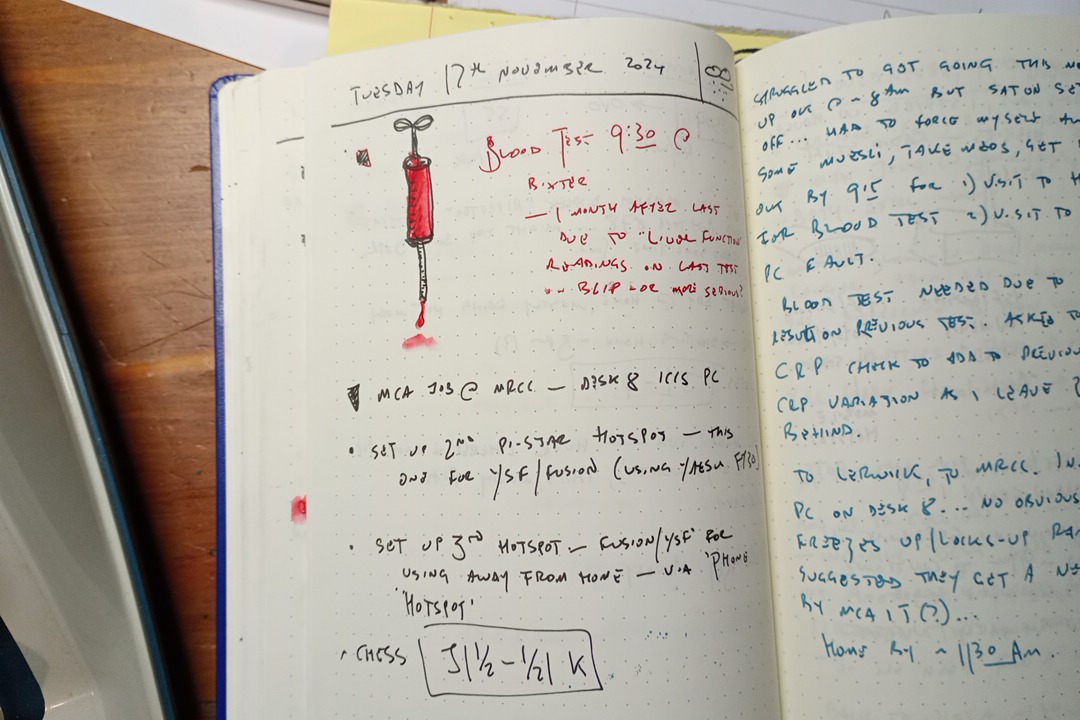 TUESDAY 17TH NOVEMBER 2024
BLOOD TEST 9:30 @
BIXTER
— 1 MONTH AFTER LAST
DUE TO "LIVER FUNCTION
READINGS ON LAST TEST
BLIP - OR MORE SERIOUS?
MCA JOB @ MRCC — DESK 8 ICCS PC
• SET UP 2ND PI-STAR HOTSPOT — THIS
ONE FOR YSF/FUSION (USING YAESU FT30)
• SET UP 3RD HOTSPOT — FUSION/YSF FOR
USING AWAY FROM HOME — VIA 'PHONE
'HOTSPOT'
• CHESS J|½-½| K
STRUGGLED TO GOT GOING THIS
UP OK @ ~ 8AM BUT SAT ON
OFF... HAD TO FORCE MYSELF
SOME MUESLI, TAKE MEDS, GET
OUT BY 915 FOR 1) VISIT TO
FOR BLOOD TEST 2) VISIT TO
PC FAULT.
BLOOD TEST NEEDED DUE TO
RESULT ON PREVIOUS TEST. ASKED
CRP CHECK TO ADD TO PREVIOUS
CRP VARIATION AS I LEAVE
BEHIND.
TO LERWICK, TO MRCC.
PC ON DESK 8... NO OBVIOUS
FREEZES UP/LOCKS-UP
SUGGESTED THEY GET A
BY MCA IT(?)...
HOME BY ~ 1130 AM.